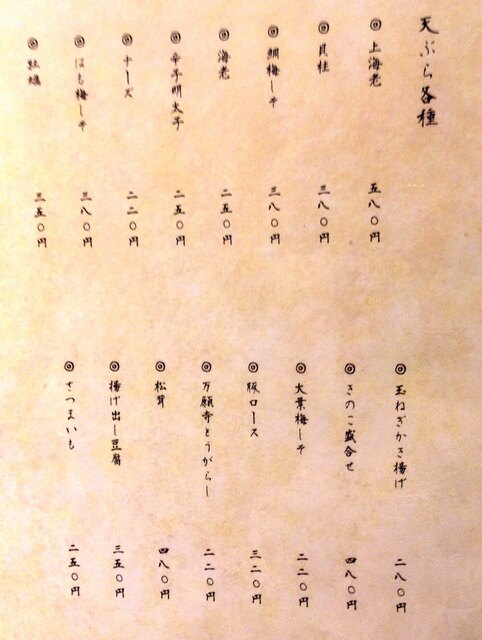 天ぷら各種
◎上海老 五八〇円
◎貝柱 三八〇円
◎鯛梅しそ 三八〇円
◎海老 二五〇円
◎辛子明太子 二五〇円
◎チーズ 二二〇円
◎はも梅しそ 三八〇円
◎牡蠣 三五〇円
◎玉ねぎかき揚げ 二八〇円
◎きのこ盛合せ 四八〇円
◎大葉梅しそ 二二〇円
◎豚ロース 三二〇円
◎万願寺とうがらし 二二〇円
◎松茸 四八〇円
◎揚げ出し豆腐 三五〇円
◎さつまいも 二五〇円